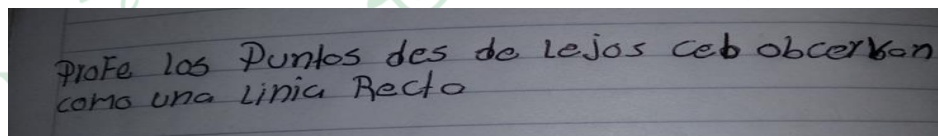 Profe los Puntos des de Lejos ceb obcerban
como una Linia Recta